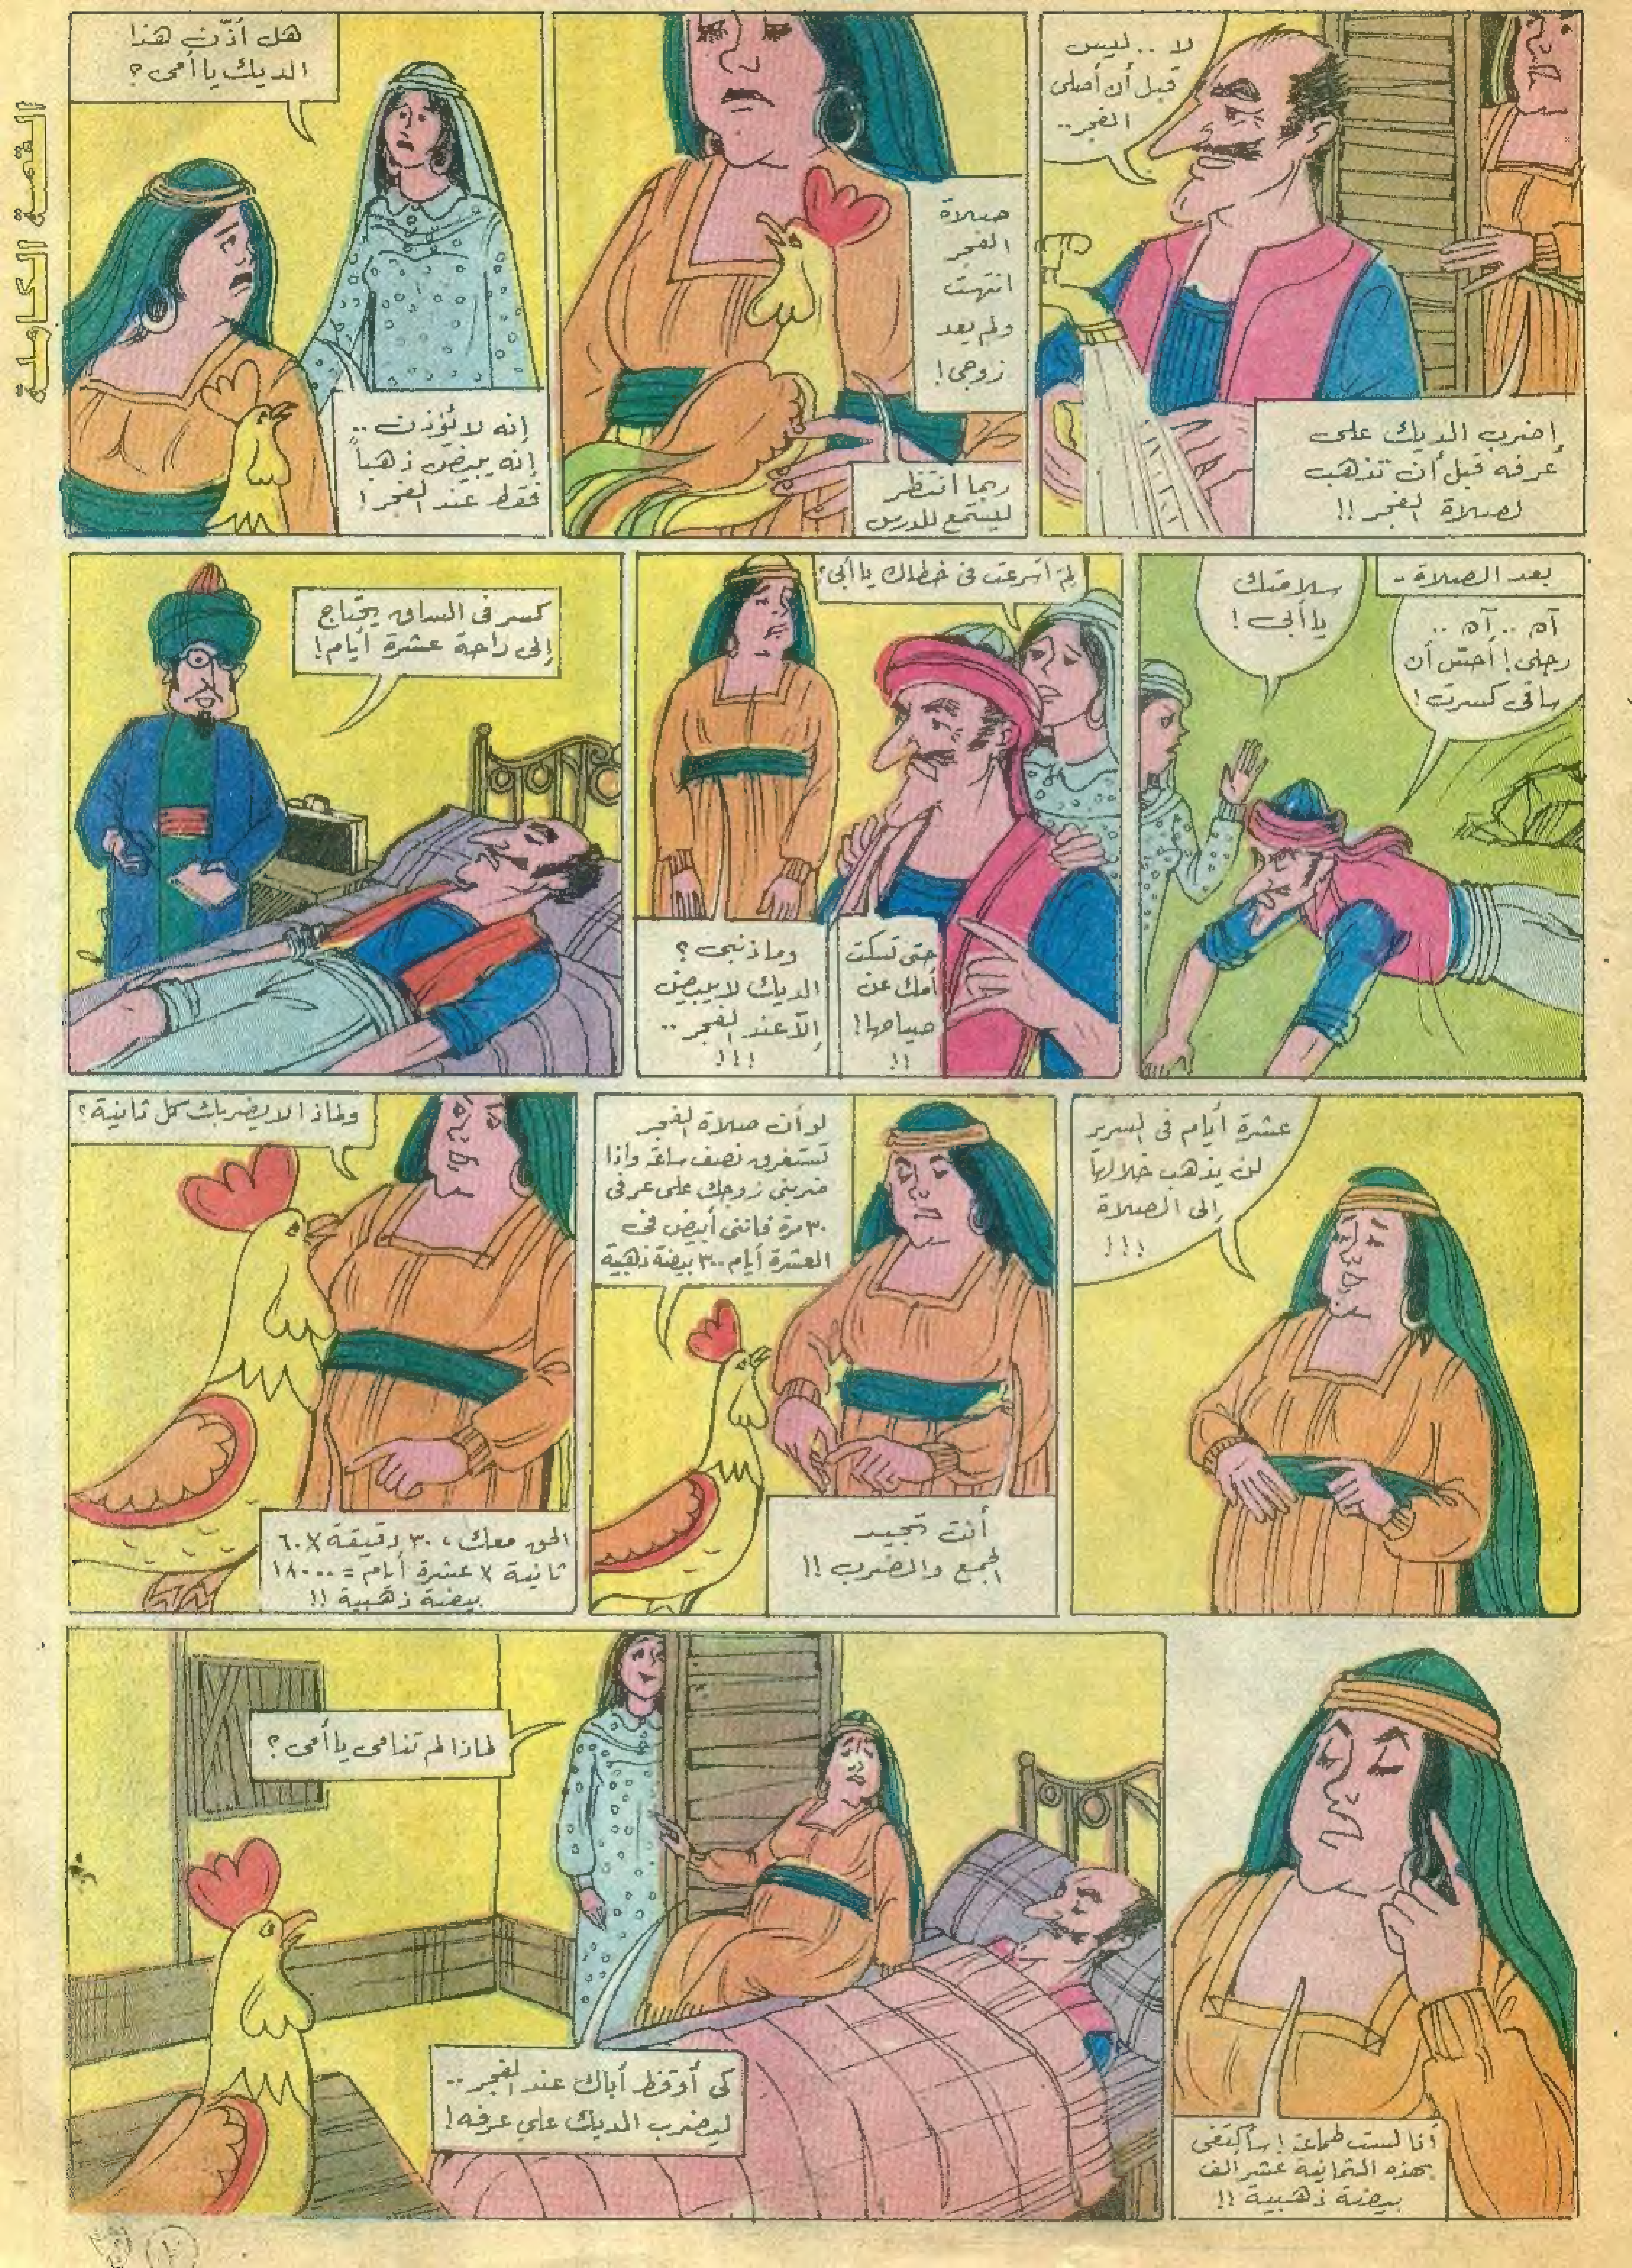 القصة الكاملة
لا .. ليس
قبل أن أصلى
الفجر ..
إضرب الديك على
عرفه قبل أن تذهب
لصلاة الفجر !!
صلاة
الفجر
انتهت
ولم يعد
زوجى !
ربما انتظر
ليستمع للدرس
هل أذّن هذا
الديك يا أمى ؟
إنه لا يُؤذن ..
إنه يبيض ذهباً
فقط عند الفجر !
بعد الصلاة ..
آه .. آه ..
رجلى ! أحس أن
ساقى كسرت !
سلامتك
يا أبى !
لِمَ أسرعت فى خطاك يا أبى ؟
حتى تسكت
أمك عن
صياحها !
!!
وما ذنبى ؟
الديك لا يبيض
إلاّ عند الفجر ..
!!!
كسر فى الساق يحتاج
إلى راحة عشرة أيام !
عشرة أيام فى السرير
لن يذهب خلالها
إلى الصلاة
!!!
لو أن صلاة الفجر
تستغرق نصف ساعة وإذا
ضربنى زوجك على عرفى
٣٠ مرة فاننى أبيض فى
العشرة أيام ٣٠٠ بيضة ذهبية
أنت تجيد
الجمع والضرب !!
ولماذا لا يضربك كل ثانية ؟
الحق معك ، ٣٠ دقيقة × ٦٠
ثانية × عشرة أيام = ١٨٠٠٠
بيضة ذهبية !!
أنا لست طماعة ! سأكتفى
بهذه الثمانية عشر ألف
بيضة ذهبية !!
لماذا لم تنامى يا أمى ؟
كى أوقظ أباك عند الفجر ..
ليضرب الديك على عرفه !
١٠